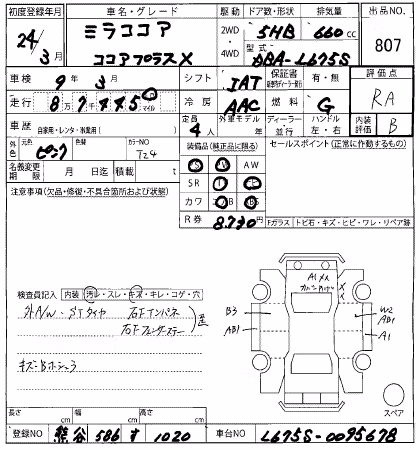 初度登録年月 車名・グレード 駆動 ドア数・形状 排気量 出品NO.
24年3月 ミラココア 2WD 5HB 660cc 807
ココアプラスX 4WD 型式 DBA-L675S
車検 9年3月 シフト IAT 保証書 有・無 評価点
走行 87,445 km マイル 冷房 AAC 燃料 G RA
車歴 自家用・レンタ・事業用( ) 定員 4人 外車モデル 年 ディーラー 並行 ハンドル 左・右 内装評価 B
外色 元色 ピンク 色替 カラーNO T24 装備品(純正品に限る) セールスポイント(正常に作動するもの)
名義変更期限 月 日迄 積載 t AW
SR
注意事項(欠品・修復・不具合箇所および状態) カワ
R券 8,730円 Fガラス トビ石・キズ・ヒビ・ワレ・リペア跡
検査員記入 内装 汚レ・スレ・キズ・キレ・コゲ・穴
外A/W STタイヤ 右Fインパネ
右Fフェンダーステー
キズ・Bホショウ
A1
B3
AB1
W2
AB1
A1
スペア
長さ cm 幅 cm 高さ cm
登録NO 熊谷 586 す 1020 車台NO L675S-0095678